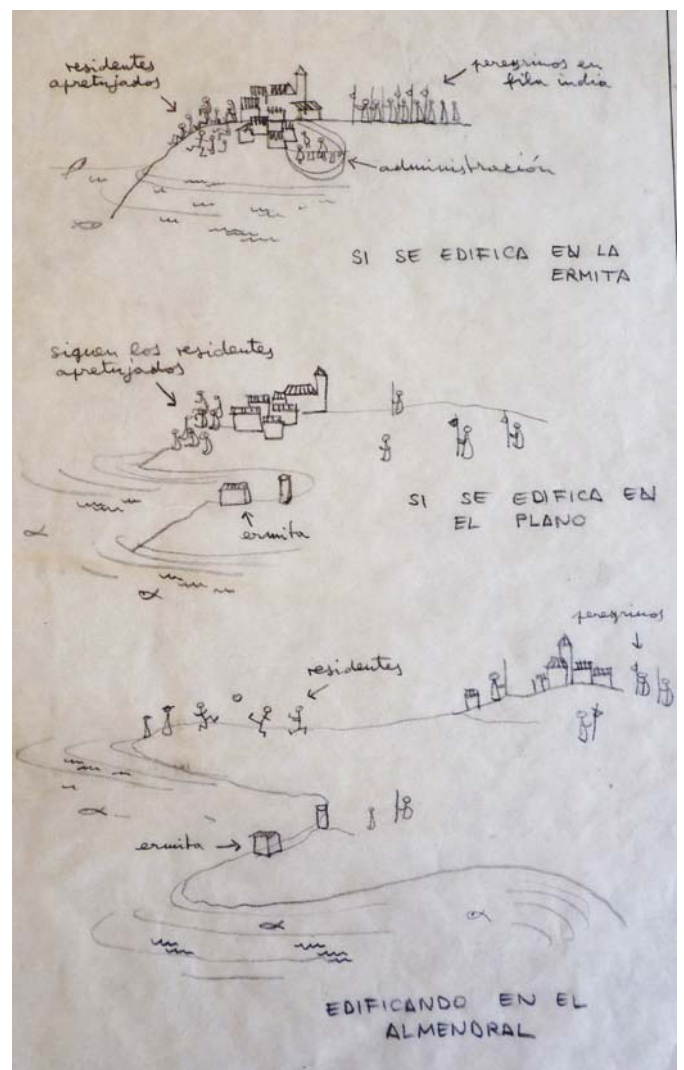 residentes
apretujados
peregrinos en
fila india
administración
SI SE EDIFICA EN LA
ERMITA
siguen los residentes
apretujados
ermita
SI SE EDIFICA EN
EL PLANO
peregrinos
residentes
ermita
EDIFICANDO EN EL
ALMENDRAL